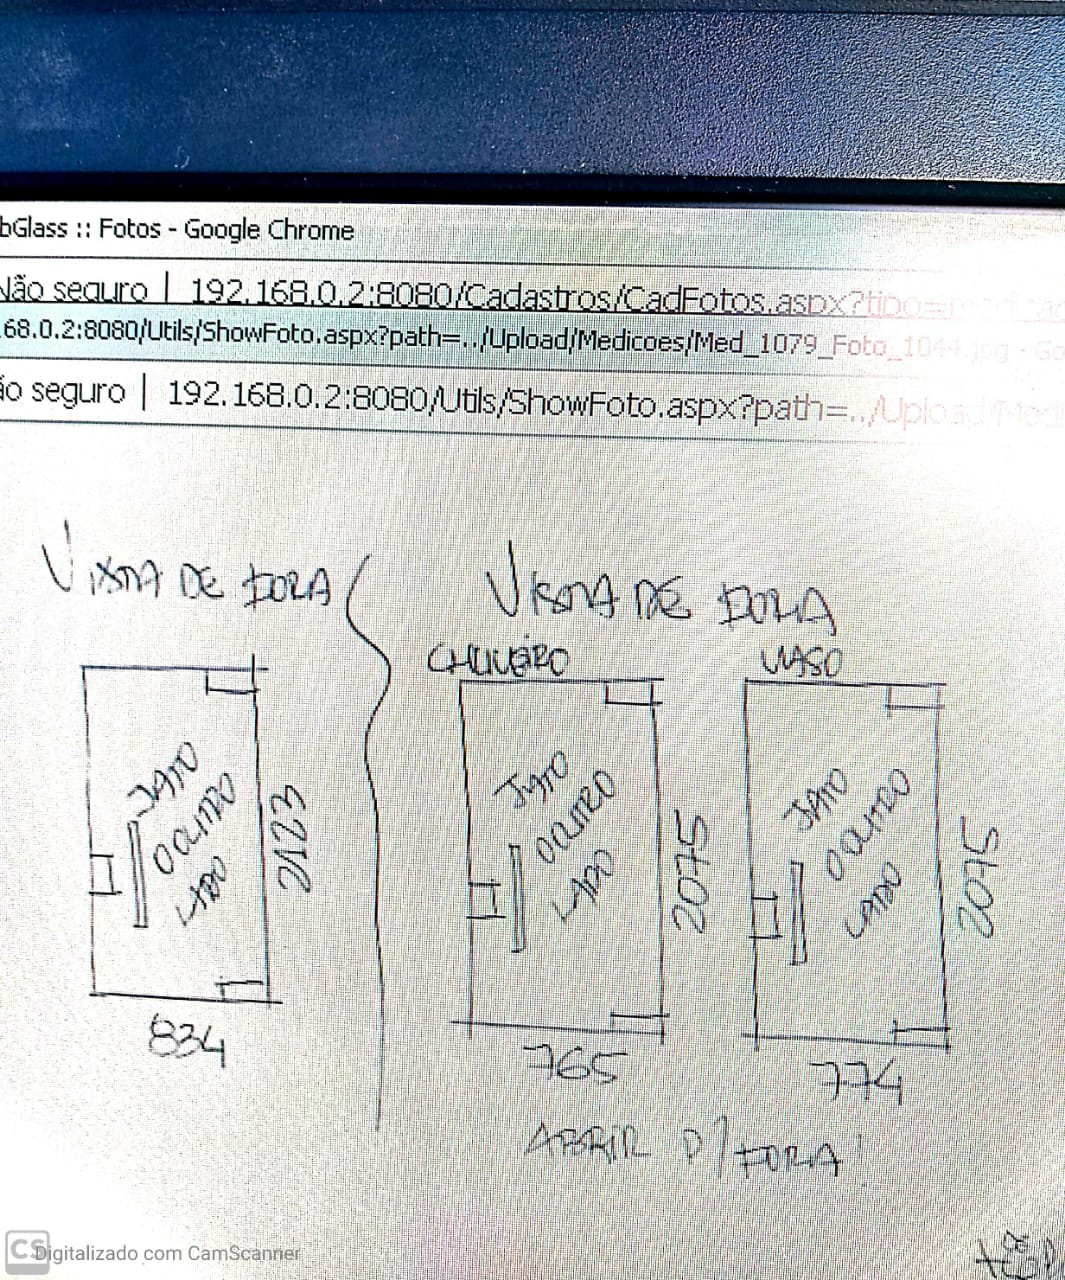 bGlass :: Fotos - Google Chrome
Não seguro | 192.168.0.2:8080/Cadastros/CadFotos.aspx?tipo=medicao
.68.0.2:8080/Utils/ShowFoto.aspx?path=../Upload/Medicoes/Med_1079_Foto_1044.jpg - Go
ão seguro | 192.168.0.2:8080/Utils/ShowFoto.aspx?path=../Upload/Med
VISTA DE FORA
JATO
O OUTRO
LADO
2123
834
VISTA DE FORA
CHUVEIRO
JATO
O OUTRO
LADO
2075
765
VASO
JATO
O OUTRO
LADO
2075
774
ABRIR P/ FORA
CS Digitalizado com CamScanner